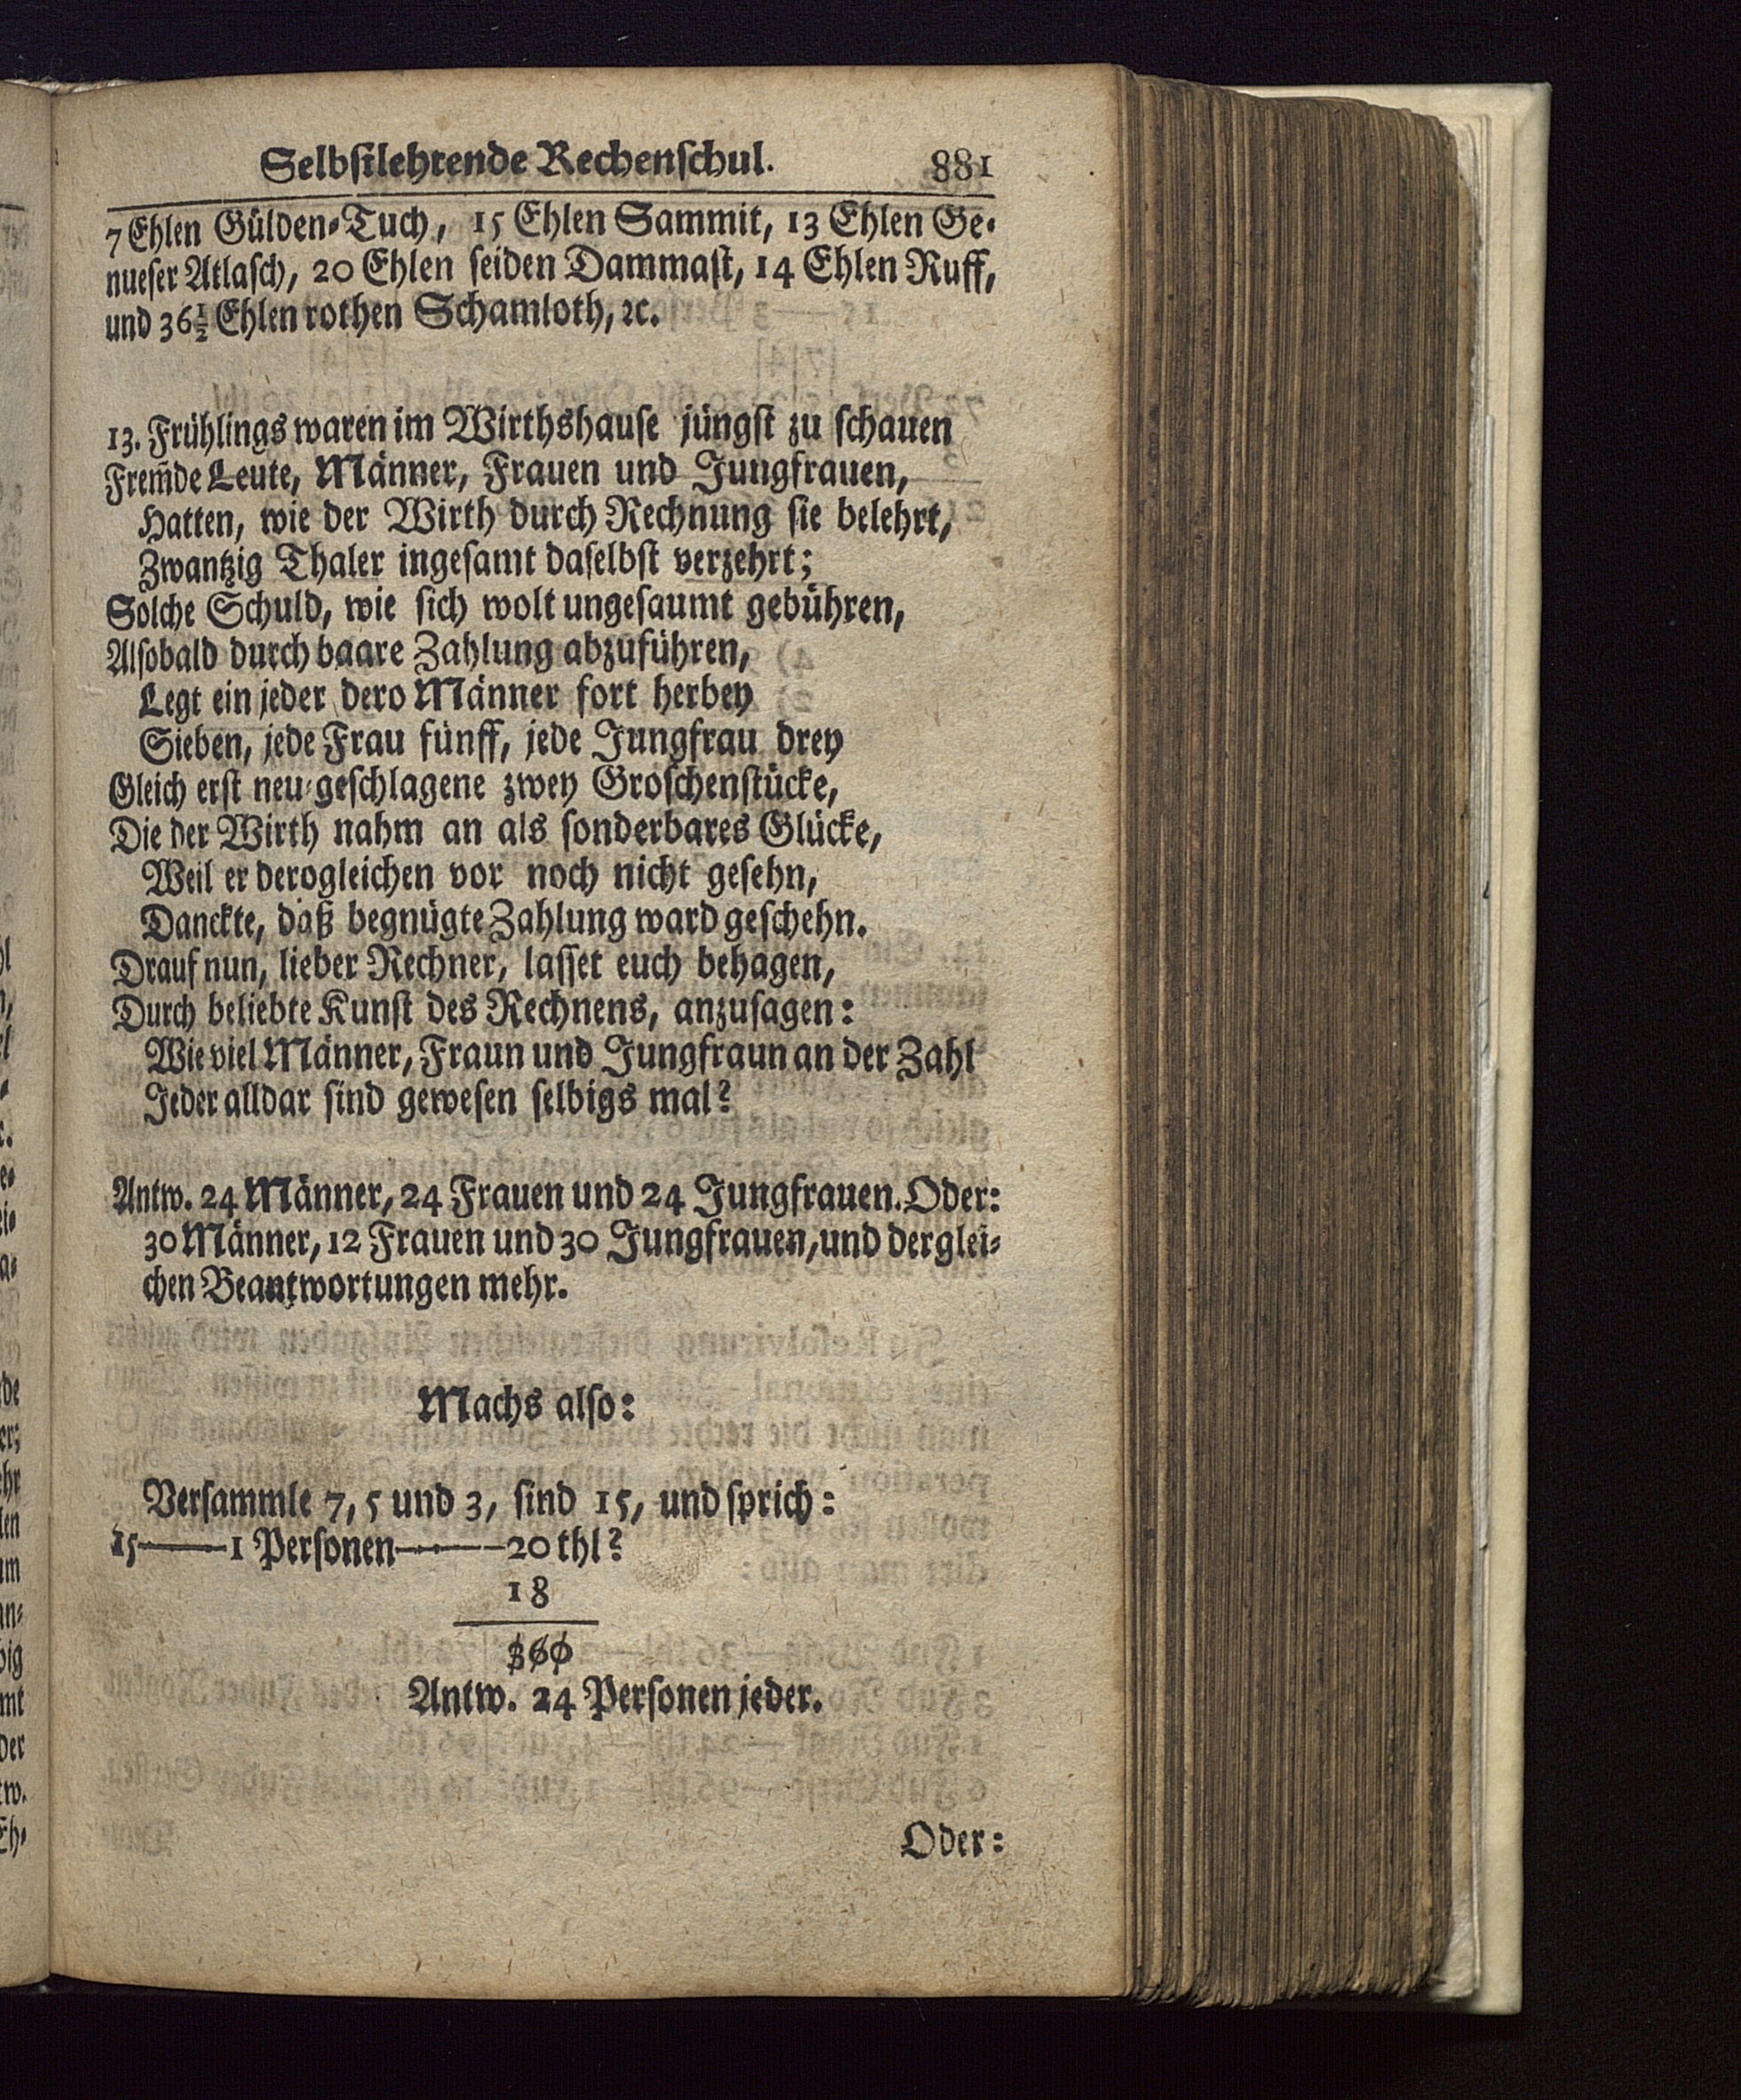 Selbstlehrende Rechenschul. 881
7 Ehlen Gülden-Tuch, 15 Ehlen Sammit, 13 Ehlen Ge-
nueser Atlasch, 20 Ehlen seiden Dammast, 14 Ehlen Ruff,
und 36½ Ehlen rothen Schamloth, ꝛc.
13. Frühlings waren im Wirthshause jüngst zu schauen
Frem̃de Leute, Männer, Frauen und Jungfrauen,
Hatten, wie der Wirth durch Rechnung sie belehrt,
Zwantzig Thaler ingesamt daselbst verzehrt;
Solche Schuld, wie sich wolt ungesaumt gebühren,
Alsobald durch baare Zahlung abzuführen,
Legt ein jeder dero Männer fort herbey
Sieben, jede Frau fünff, jede Jungfrau drey
Gleich erst neu-geschlagene zwey Groschenstücke,
Die der Wirth nahm an als sonderbares Glücke,
Weil er derogleichen vor noch nicht gesehn,
Danckte, daß begnügte Zahlung ward geschehn.
Drauf nun, lieber Rechner, lasset euch behagen,
Durch beliebte Kunst des Rechnens, anzusagen:
Wie viel Männer, Fraun und Jungfraun an der Zahl
Jeder alldar sind gewesen selbigs mal?
Antw. 24 Männer, 24 Frauen und 24 Jungfrauen. Oder:
30 Männer, 12 Frauen und 30 Jungfrauen, und derglei-
chen Beantwortungen mehr.
Machs also:
Versammle 7, 5 und 3, sind 15, und sprich:
15——1 Personen——20 thl?
18
360
Antw. 24 Personen jeder.
Oder: